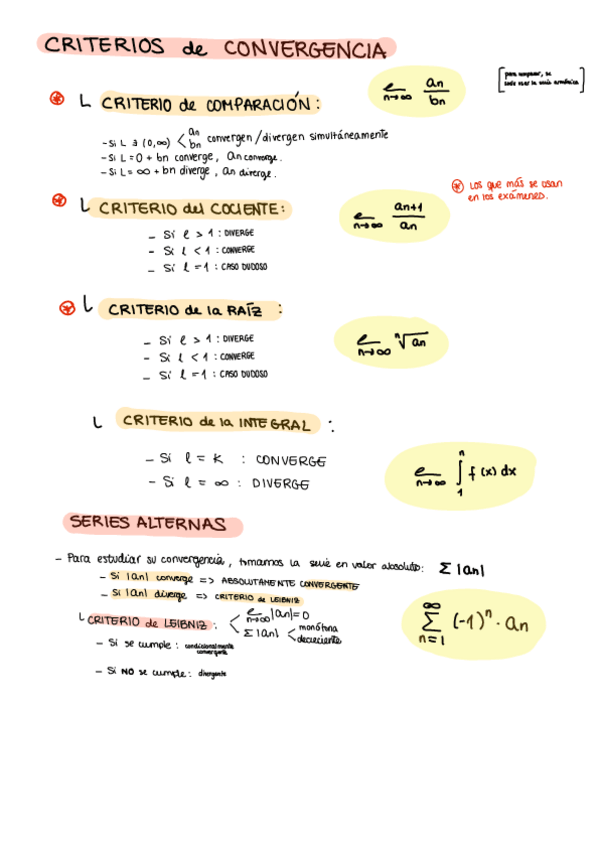 CRITERIOS de CONVERGENCIA
L CRITERIO de COMPARACIÓN:
l n→∞ an/bn
[para comparar, se suele usar la serie armónica]
- Si L ∃ (0,∞) < an bn convergen/divergen simultáneamente
- Si L = 0 + bn converge, an converge.
- Si L = ∞ + bn diverge, an diverge.
* LOS que más se usan
en los exámenes.
L CRITERIO del COCIENTE:
l n→∞ an+1/an
- Si l > 1 : DIVERGE
- Si l < 1 : CONVERGE
- Si l = 1 : CASO DUDOSO
L CRITERIO de la RAÍZ :
l n→∞ ⁿ√an
- Si l > 1 : DIVERGE
- Si l < 1 : CONVERGE
- Si l = 1 : CASO DUDOSO
L CRITERIO de la INTEGRAL :
l n→∞ ∫₁ⁿ f(x) dx
- Si l = K : CONVERGE
- Si l = ∞ : DIVERGE
SERIES ALTERNAS
- Para estudiar su convergencia, tomamos la serie en valor absoluto: Σ |an|
- Si |an| converge => ABSOLUTAMENTE CONVERGENTE
- Si |an| diverge => CRITERIO de LEIBNIZ
∞ Σ n=1 (-1)ⁿ · an
L CRITERIO de LEIBNIZ : < l n→∞ |an| = 0
Σ |an| < monótona
decreciente
- Si se cumple : condicionalmente
convergente
- Si NO se cumple : divergente